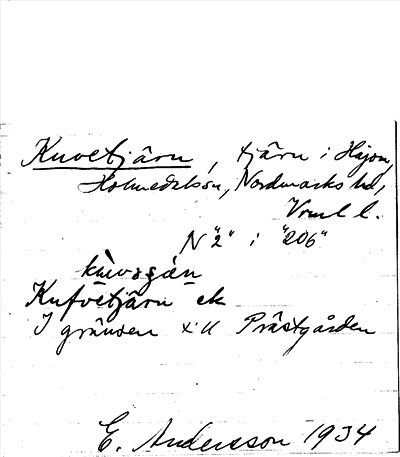 Kuvetjärn, tjärn i Höjon,
Holmedals sn, Nordmarks hd,
Vrml l.
N "2" i "206"
kùvəgán
Kufvetjärn ek
I gränsen till Prästgården
E. Andersson 1934